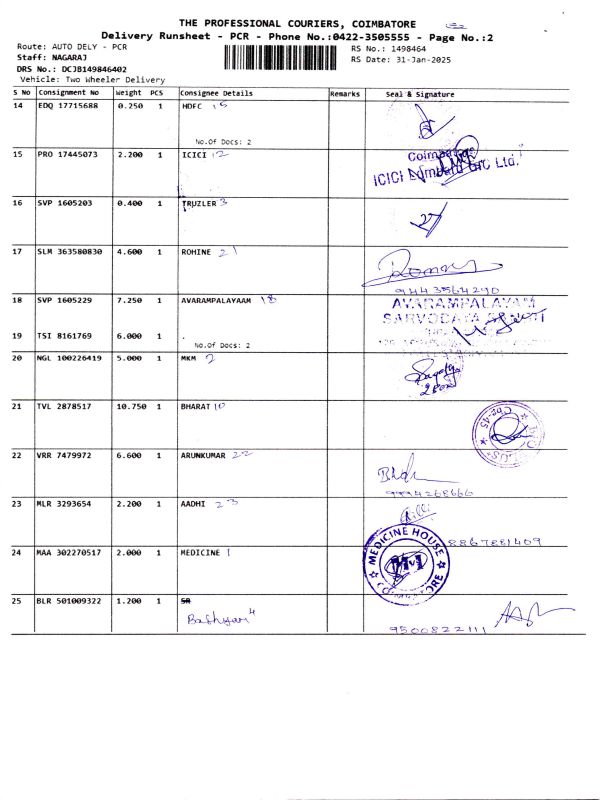 THE PROFESSIONAL COURIERS, COIMBATORE
Delivery Runsheet - PCR - Phone No.:0422-3505555 - Page No.:2
Route: AUTO DELY - PCR
RS No.: 1498464
Staff: NAGARAJ
RS Date: 31-Jan-2025
DRS No.: DCJB149846402
Vehicle: Two Wheeler Delivery
S No Consignment No Weight PCS Consignee Details Remarks Seal & Signature
14 EDQ 17715688 0.250 1 HDFC 15
No.Of Docs: 2
15 PRO 17445073 2.200 1 ICICI 12
Coimbatore
ICICI Lombard GIC Ltd.
16 SVP 1605203 0.400 1 TRUZLER 3
27
17 SLM 363580830 4.600 1 ROHINE 21
9443564290
18 SVP 1605229 7.250 1 AVARAMPALAYAAM 18
AVARAMPALAYAM
SARVODAYA
19 TSI 8161769 6.000 1 .
No.Of Docs: 2
20 NGL 100226419 5.000 1 MKM 2
21 TVL 2878517 10.750 1 BHARAT 10
Cbe-45
22 VRR 7479972 6.600 1 ARUNKUMAR 22
9994268666
23 MLR 3293654 2.200 1 AADHI 23
8867881409
24 MAA 302270517 2.000 1 MEDICINE 1
MEDICINE HOUSE
COIMBATORE
25 BLR 501009322 1.200 1 SR
4
9500822111